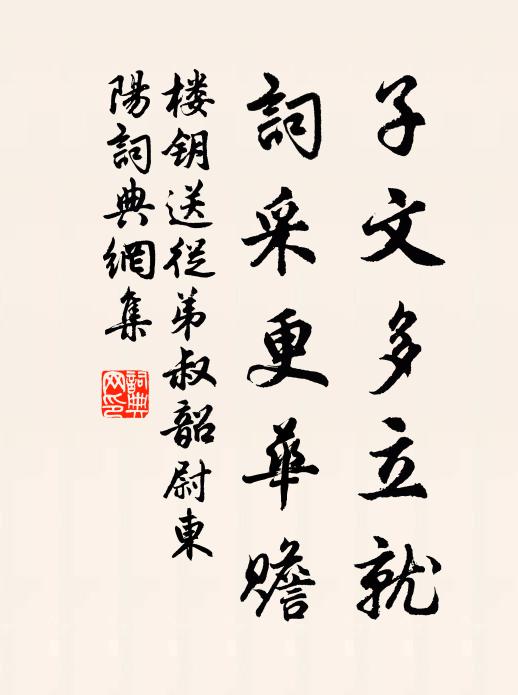 子文多立就
詞采更華贍
楼鑰送從弟叔韶尉東
陽詞典網集
詞典
网印